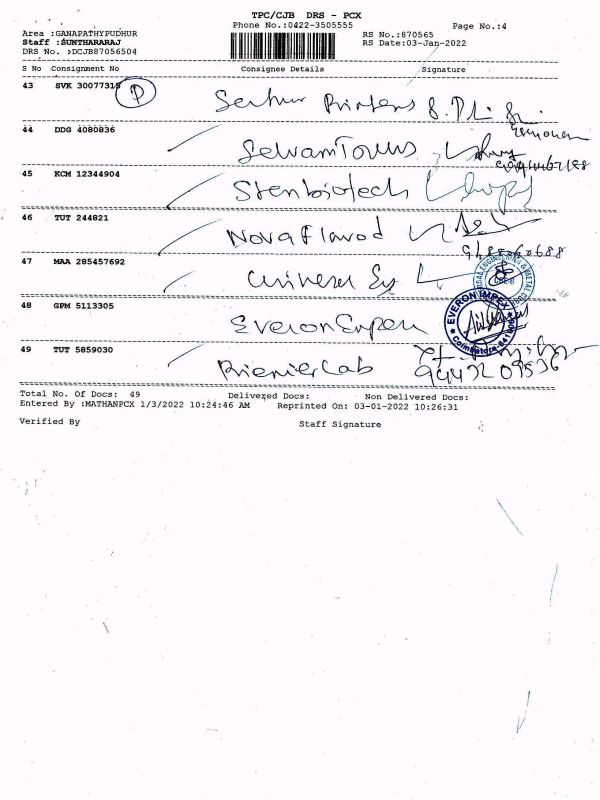 TPC/CJB DRS - PCX
Phone No.:0422-3505555 Page No.:4
Area :GANAPATHYPUDHUR RS No.:870565
Staff :SUNTHARARAJ RS Date:03-Jan-2022
DRS No. :DCJB87056504
S No Consignment No Consignee Details Signature
43 SVK 30077315 P Printers
44 DDG 4080836 Selvam Tours
45 KCM 12344904 Stenbiotech
46 TUT 244821 Nova Flavod
47 MAA 285457692
48 GPM 5113305 Everon
EVERON IMPEX
49 TUT 5859030 Premier Lab
Total No. Of Docs: 49 Delivered Docs: Non Delivered Docs:
Entered By :MATHANPCX 1/3/2022 10:24:46 AM Reprinted On: 03-01-2022 10:26:31
Verified By Staff Signature